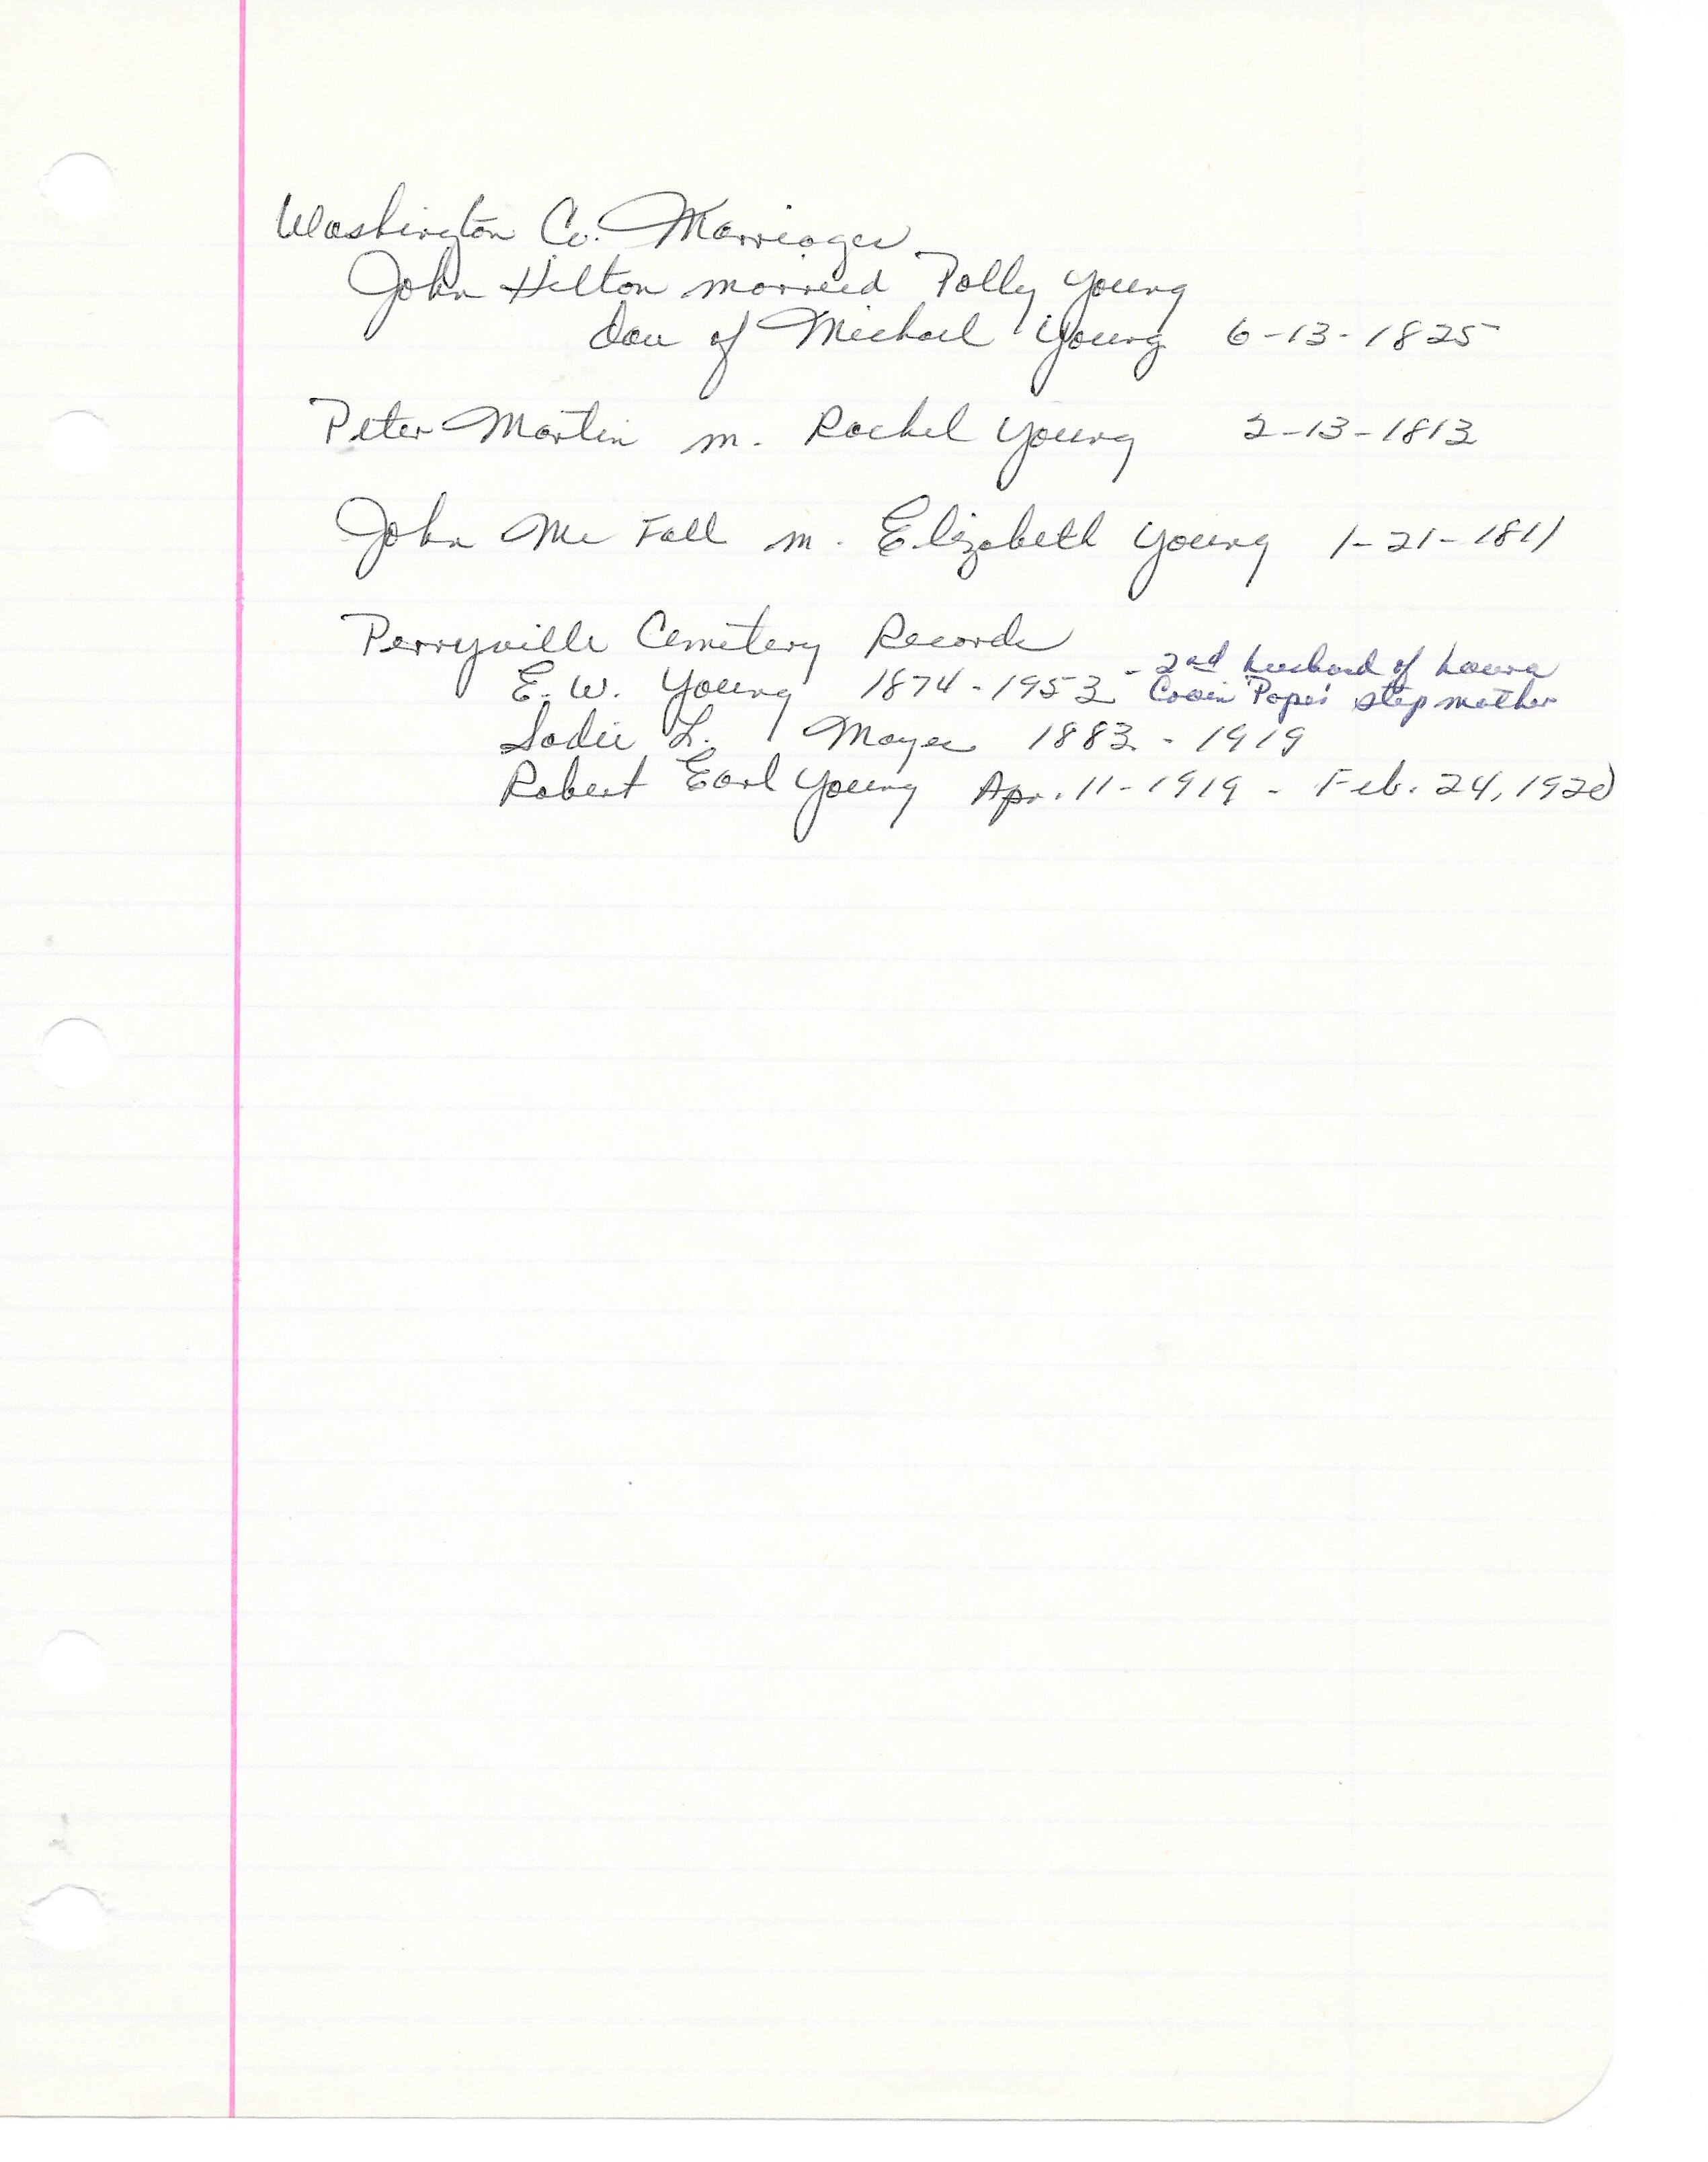 Washington Co. Marriages
John Hilton married Polly Young
dau of Michael Young 6-13-1825
Peter Martin m. Rachel Young 2-13-1813
John Mc Fall m. Elizabeth Young 1-21-1811
Perryville Cemetery Records
E. W. Young 1874-1953 - 2nd husband of Laura
Pope's step mother
Sadie L. Mayes 1883 - 1919
Robert Earl Young Apr. 11-1919 - Feb. 24, 1920